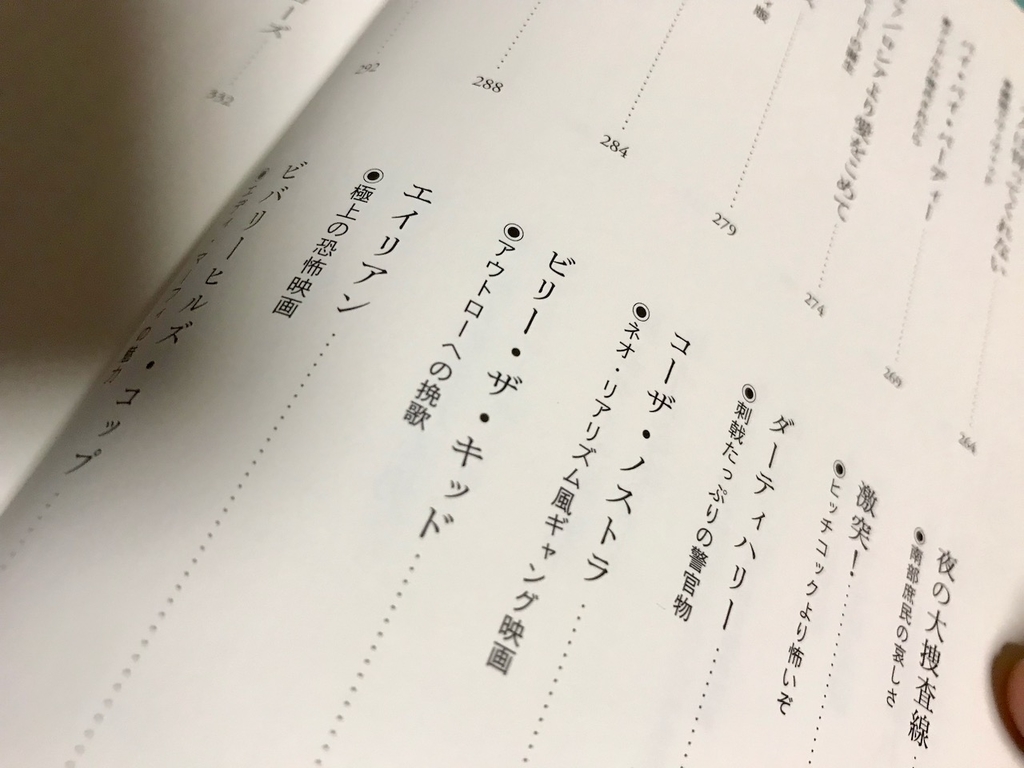 264
269
バイ・バイ・バーディー
274
279
284
288
292
332
夜の大捜査線
◉南部庶民の哀しさ
激突!
◉ヒッチコックより怖いぞ
ダーティハリー
◉刺戟たっぷりの警官物
コーザ・ノストラ
◉ネオ・リアリズム風ギャング映画
ビリー・ザ・キッド
◉アウトローへの挽歌
エイリアン
◉極上の恐怖映画
ビバリーヒルズ・コップ
◉エディ・マーフィの魅力